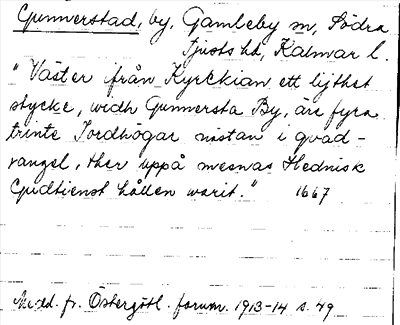 Gunnerstad, by, Gamleby sn, Södra
Tjusts hd, Kalmar l.
"Väster ifrån Kyrckian ett lijthet
stycke, widh Gunnersta By, äre fyra
trinte Jordhögar nästan i qvad-
rangel, ther uppå mesnas Hednisk
Gudtienst hållen warit." 1667
Medd. fr. Östergötl. fornm. 1913-14 s. 49